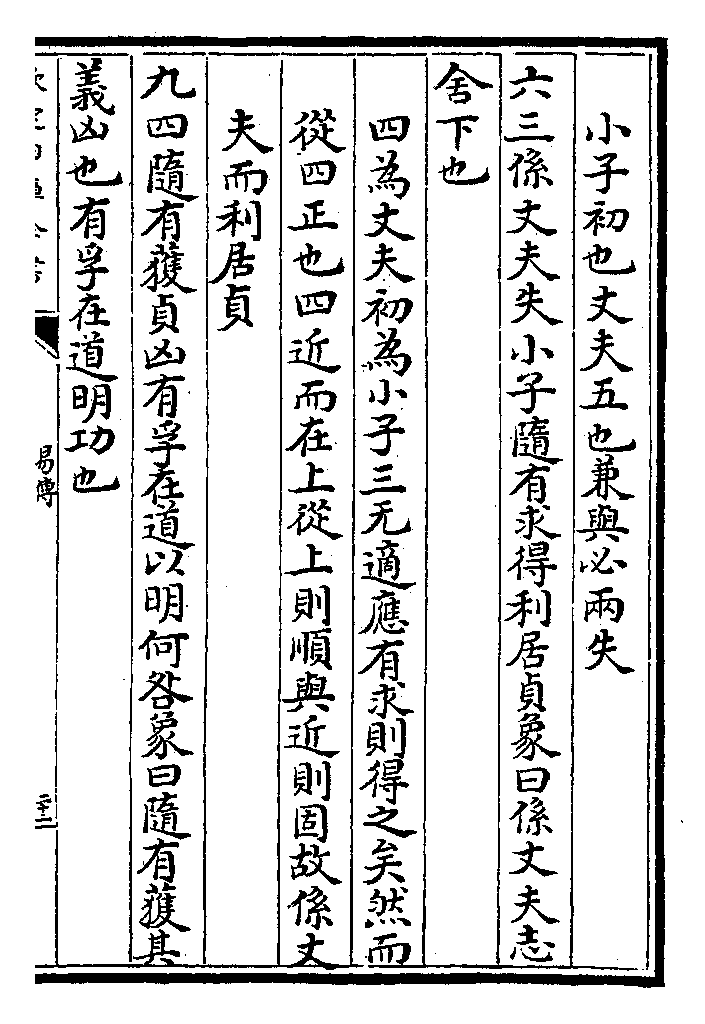 小子初也丈夫五也兼與必兩失
六三係丈夫失小子隨有求得利居貞象曰係丈夫志
舍下也
四為丈夫初為小子三无適應有求則得之矣然而
從四正也四近而在上從上則順與近則固故係丈
夫而利居貞
九四隨有獲貞凶有孚在道以明何咎象曰隨有獲其
義凶也有孚在道明功也
易傳
二十二